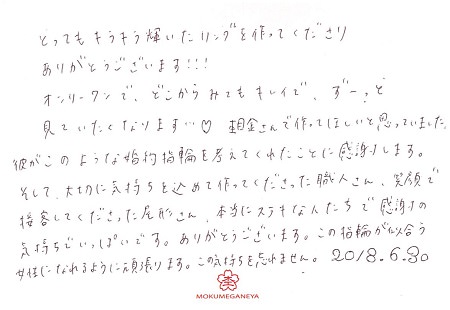 とってもキラキラ輝いたリングを作ってくださり
ありがとうございます!!!
オンリーワンで、どこからみてもキレイで、ずーっと
見ていたくなります…♡ 杢金さんで作ってほしいと思っていました。
彼がこのような婚約指輪を考えてくれたことに感謝します。
そして、大切に気持ちを込めて作ってくださった職人さん、笑顔で
接客してくださった尾形さん、本当にステキな人たちで感謝の
気持ちでいっぱいです。ありがとうございます。この指輪が似合う
女性になれるように頑張ります。この気持ちを忘れません。2018.6.30
MOKUMEGANEYA